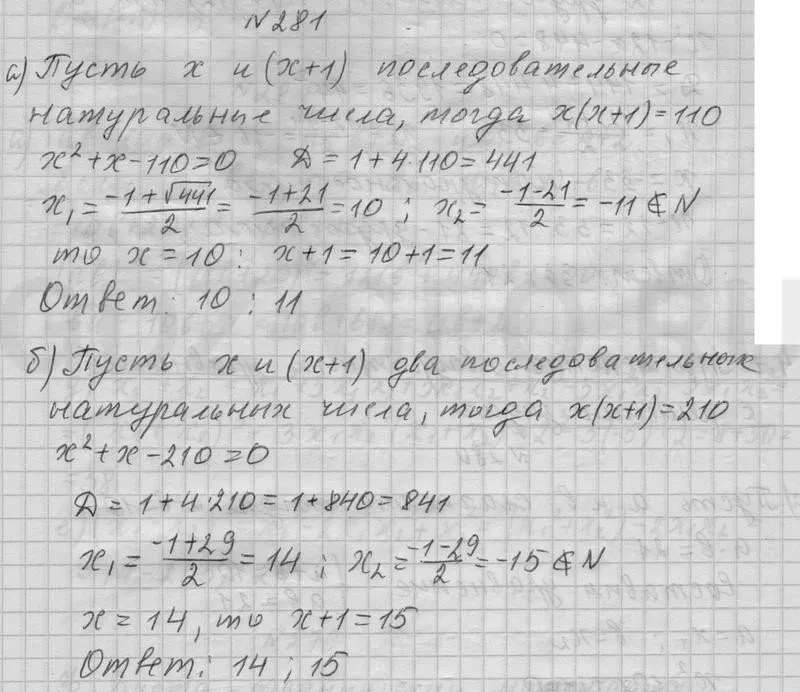 N281
а) Пусть x и (x+1) последовательные
натуральные числа, тогда x(x+1)=110
x²+x-110=0 Д=1+4·110=441
x₁=(-1+√441)/2=(-1+21)/2=10; x₂=(-1-21)/2=-11∉N
то x=10: x+1=10+1=11
Ответ: 10; 11
б) Пусть x и (x+1) два последовательных
натуральных числа, тогда x(x+1)=210
x²+x-210=0
Д=1+4·210=1+840=841
x₁=(-1+29)/2=14; x₂=(-1-29)/2=-15∉N
x=14, то x+1=15
Ответ: 14; 15